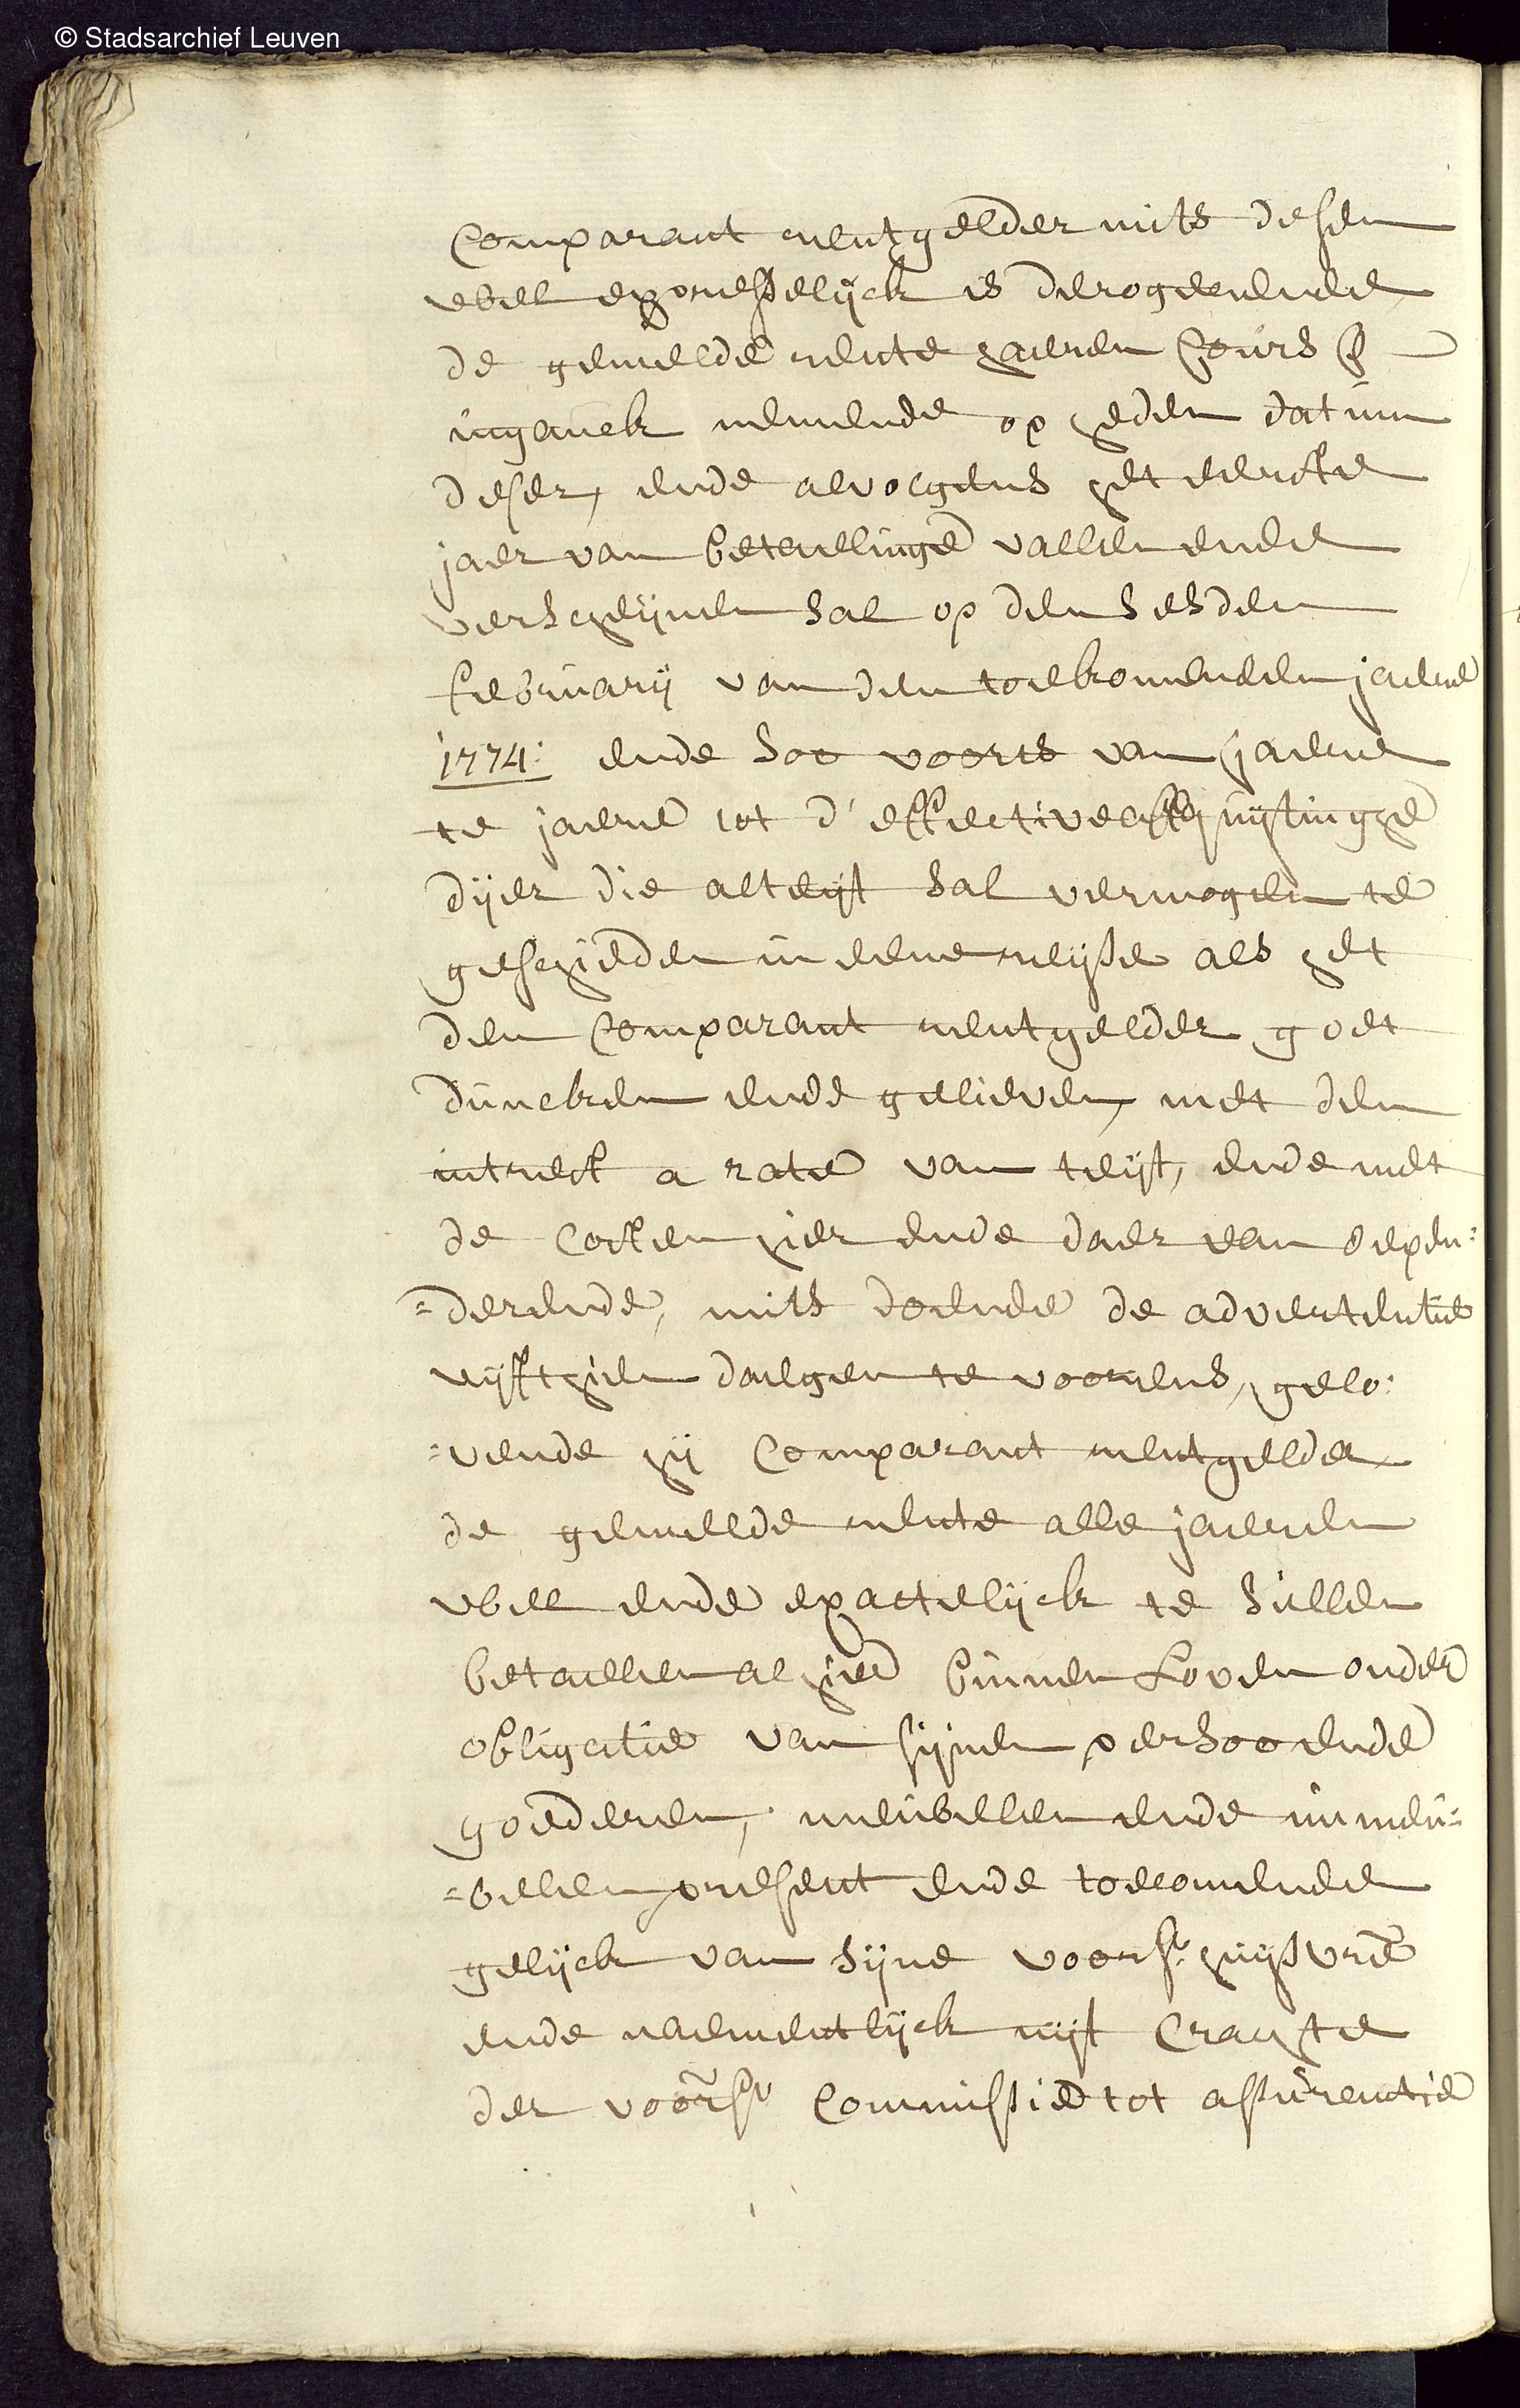 © Stadsarchief Leuven
Comparant rentgelder mits desen
wel expresselijck is derogerende
de gemelde rente haeren cours &
inganck nemende op heden datum
deser, ende alvolgens het eerste
jaer van betaelinge vallen ende
verschijnen sal op den sesden
februarij van den toekomenden jaere
1774: ende soo voorts van jaere
te jaere tot d'effective quijtinghe
dijer die alteijt sal vermogen te
geschieden in eene reijse als het
den Comparant rentgelder goet
duncken ende gelieven, met den
intrest a rate van teijt, ende met
de costen hier ende daer van depen=
=derende, mits doende de advertentie
vijfthien daegen te voorens, gelo=
=vende hij Comparant rentgelder
de gemelde rente alle jaeren
wel ende exactelijck te sullen
betaelen alhier binnen Loven onder
obligatie van sijnen persoon ende
goederen, meubelen ende immeu=
=belen present ende toecomende
gelijck van sijne voors: huijsvre
ende naementlijck uijt crachte
der voors: Commissie tot assurentie